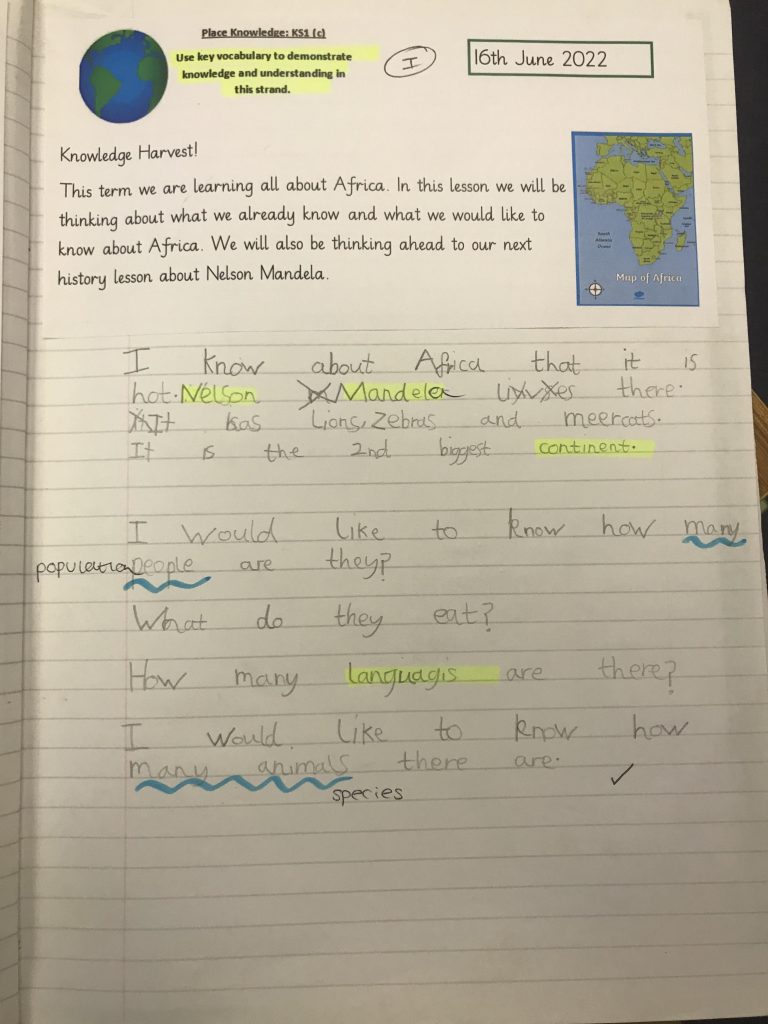 Place Knowledge: KS1 (c)
Use key vocabulary to demonstrate
knowledge and understanding in
this strand.
I
16th June 2022
Knowledge Harvest!
This term we are learning all about Africa. In this lesson we will be
thinking about what we already know and what we would like to
know about Africa. We will also be thinking ahead to our next
history lesson about Nelson Mandela.
South
Atlantic
Ocean
Map of Africa
I know about Africa that it is
hot. Nelson Mandela es there.
It has Lions, Zebras and meercats.
It is the 2nd biggest continent.
I would like to know how many
population people are they?
What do they eat?
How many languagis are there?
I would like to know how
many animals there are.
species